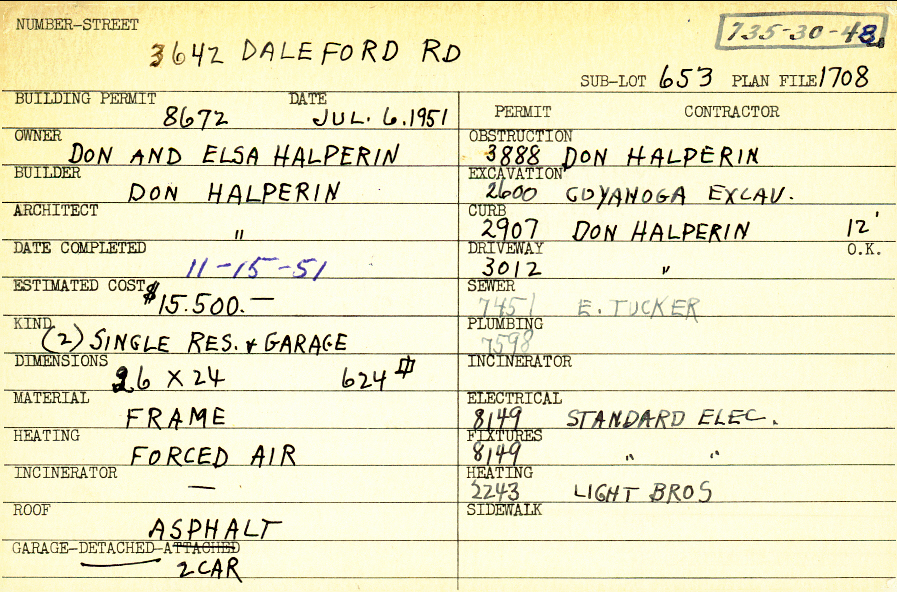 NUMBER-STREET
3642 DALEFORD RD
735-30-48
SUB-LOT 653 PLAN FILE 1708
BUILDING PERMIT DATE
8672 JUL. 6.1951
OWNER
DON AND ELSA HALPERIN
BUILDER
DON HALPERIN
ARCHITECT
"
DATE COMPLETED
11-15-51
ESTIMATED COST
$15.500.—
KIND
(2) SINGLE RES. & GARAGE
DIMENSIONS
26 X 24 624
MATERIAL
FRAME
HEATING
FORCED AIR
INCINERATOR
—
ROOF
ASPHALT
GARAGE-DETACHED-ATTACHED
2 CAR
PERMIT CONTRACTOR
OBSTRUCTION
3888 DON HALPERIN
EXCAVATION
2600 COYANOGA EXCAV.
CURB
2907 DON HALPERIN 12'
DRIVEWAY O.K.
3012 "
SEWER
7451 E. TUCKER
PLUMBING
7598
INCINERATOR
ELECTRICAL
8149 STANDARD ELEC.
FIXTURES
8149 " "
HEATING
2243 LIGHT BROS
SIDEWALK